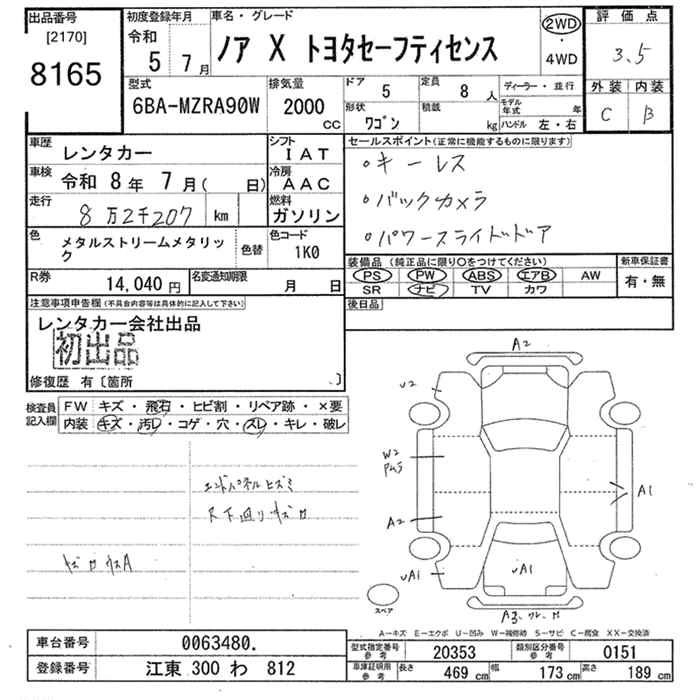 出品番号
[2170]
8165
初度登録年月
令和
5 7月
車名・グレード
ノア X トヨタセーフティセンス
2WD
・
4WD
評価点
3.5
外装 内装
C B
型式
6BA-MZRA90W
排気量
2000
cc
ドア
5
定員
8 人
形状
ワゴン
積載
kg
ディーラー・並行
モデル年式 年
ハンドル 左・右
車歴
レンタカー
シフト
IAT
車検
令和 8 年 7 月 ( 日)
冷房
AAC
走行
8 万2千207 km
燃料
ガソリン
色
メタルストリームメタリック
色替
色コード
1K0
R券
14,040 円
名変通知期限
月 日
セールスポイント(正常に機能するものに限ります)
・キーレス
・バックカメラ
・パワースライドドア
装備品 (純正品に限り○をつけてください)
PS PW ABS エアB AW
SR ナビ TV カワ
新車保証書
有・無
後日品
注意事項申告欄(不具合内容等は具体的に記入して下さい)
レンタカー会社出品
初出品
修復歴 有〔箇所 〕
検査員記入欄
FW キズ・飛石・ヒビ割・リペア跡・×要
内装 キズ・汚レ・コゲ・穴・スレ・キレ・破レ
エンドパネルヒズミ
A2
U2
W2
A2
A1
A1
A1
スペア
A―キズ E―エクボ U―凹み W―補修跡 S―サビ C―腐食 XX―交換済
車台番号
0063480.
登録番号
江東 300 わ 812
型式指定番号
参考
20353
類別区分番号
参考
0151
車庫証明用
参考
長さ
469 cm
幅
173 cm
高さ
189 cm